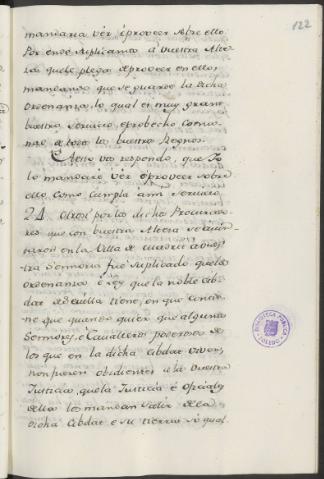 122
mandaria vér, é proveer sobre ello
Por ende suplicamos á vuestra Alte-
za quele plega de proveer en ello,
mandando que se guarde la dicha
ordenanza, lo qual es muy grant
vuestro servicio, é probecho comu-
nal de todos los vuestros Regnos.
A esto vos respondo, que Yo
lo mandaré vér é proveer sobre
ello como cumpla á mi servicio
24 Otrosi por los dichos Procurado-
res que con vuestra Alteza se ayun-
taron en la Villa de Madrid á vues-
tra Sennoria fué suplicado quela
ordenanza é ley que la noble cib-
dat de Sevilla tiene, en que contie-
ne que quando quier que algunos
Sennores, é Cavalleros poderosos de
los que en la dicha cibdat viven,
non fueren obidientes á la vuestra
Justicia, quela Justicia é oficiales
della los mandan salir de la
dicha Cibdat é su tierra só qual
BIBLIOTECA PUBLICA
TOLEDO